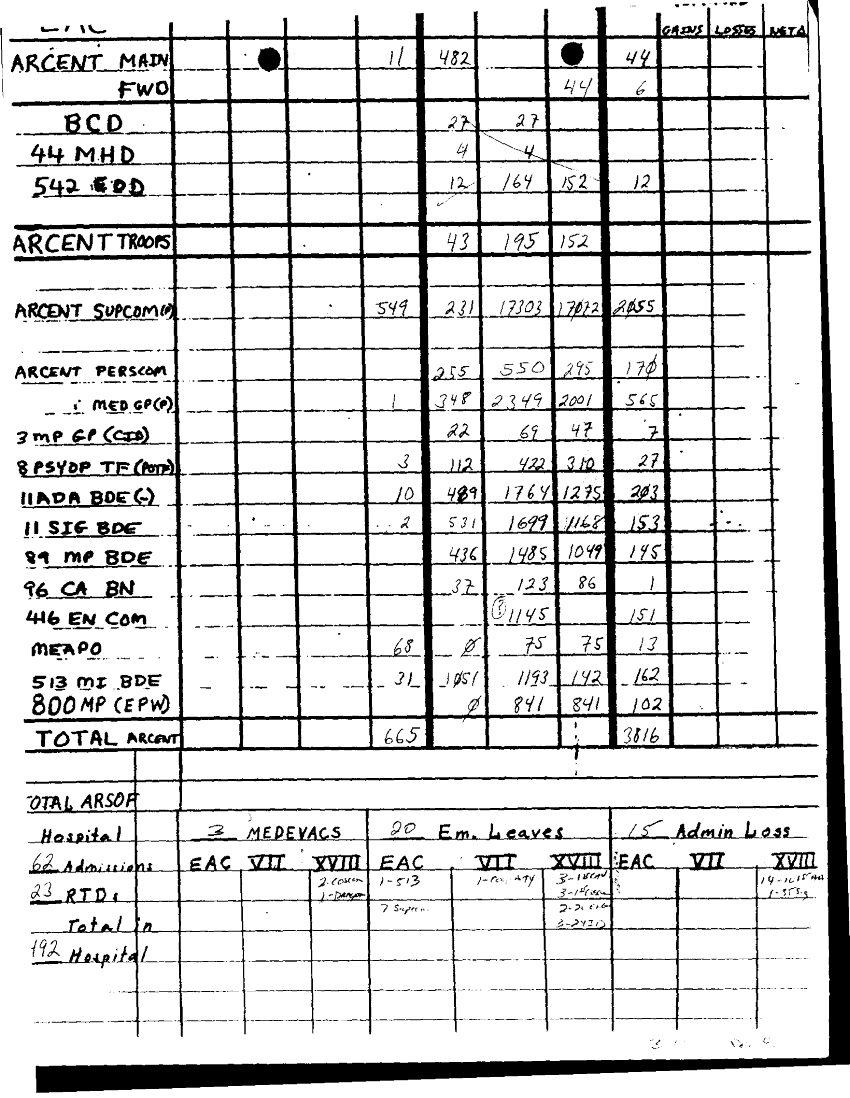 EAC
GAINS LOSSES NET Δ
ARCENT MAIN 11 482 44
FWD 44 6
BCD 27 27
44 MHD 4 4
542 EOD 12 164 152 12
ARCENT TROOPS 43 195 152
ARCENT SUPCOM(P) 549 231 17303 17072 2055
ARCENT PERSCOM 255 550 295 170
MED GP(P) 1 348 2349 2001 565
3 MP GP (CID) 22 69 47 7
8 PSYOP TF 3 112 422 310 27
11 ADA BDE (-) 10 489 1764 1275 203
11 SIG BDE 2 531 1699 1168 153
89 MP BDE 436 1485 1049 145
96 CA BN 37 123 86 1
416 EN COM 1145 151
MEAPO 68 0 75 75 13
513 MI BDE 31 1051 1193 142 162
800 MP (EPW) 0 841 841 102
TOTAL ARCENT 665 3816
OTAL ARSOF
Hospital 3 MEDEVACS 20 Em. Leaves 15 Admin Loss
62 Admissions EAC VII XVIII EAC VII XVIII EAC VII XVIII
23 RTDs 1-513
Total in
192 Hospital